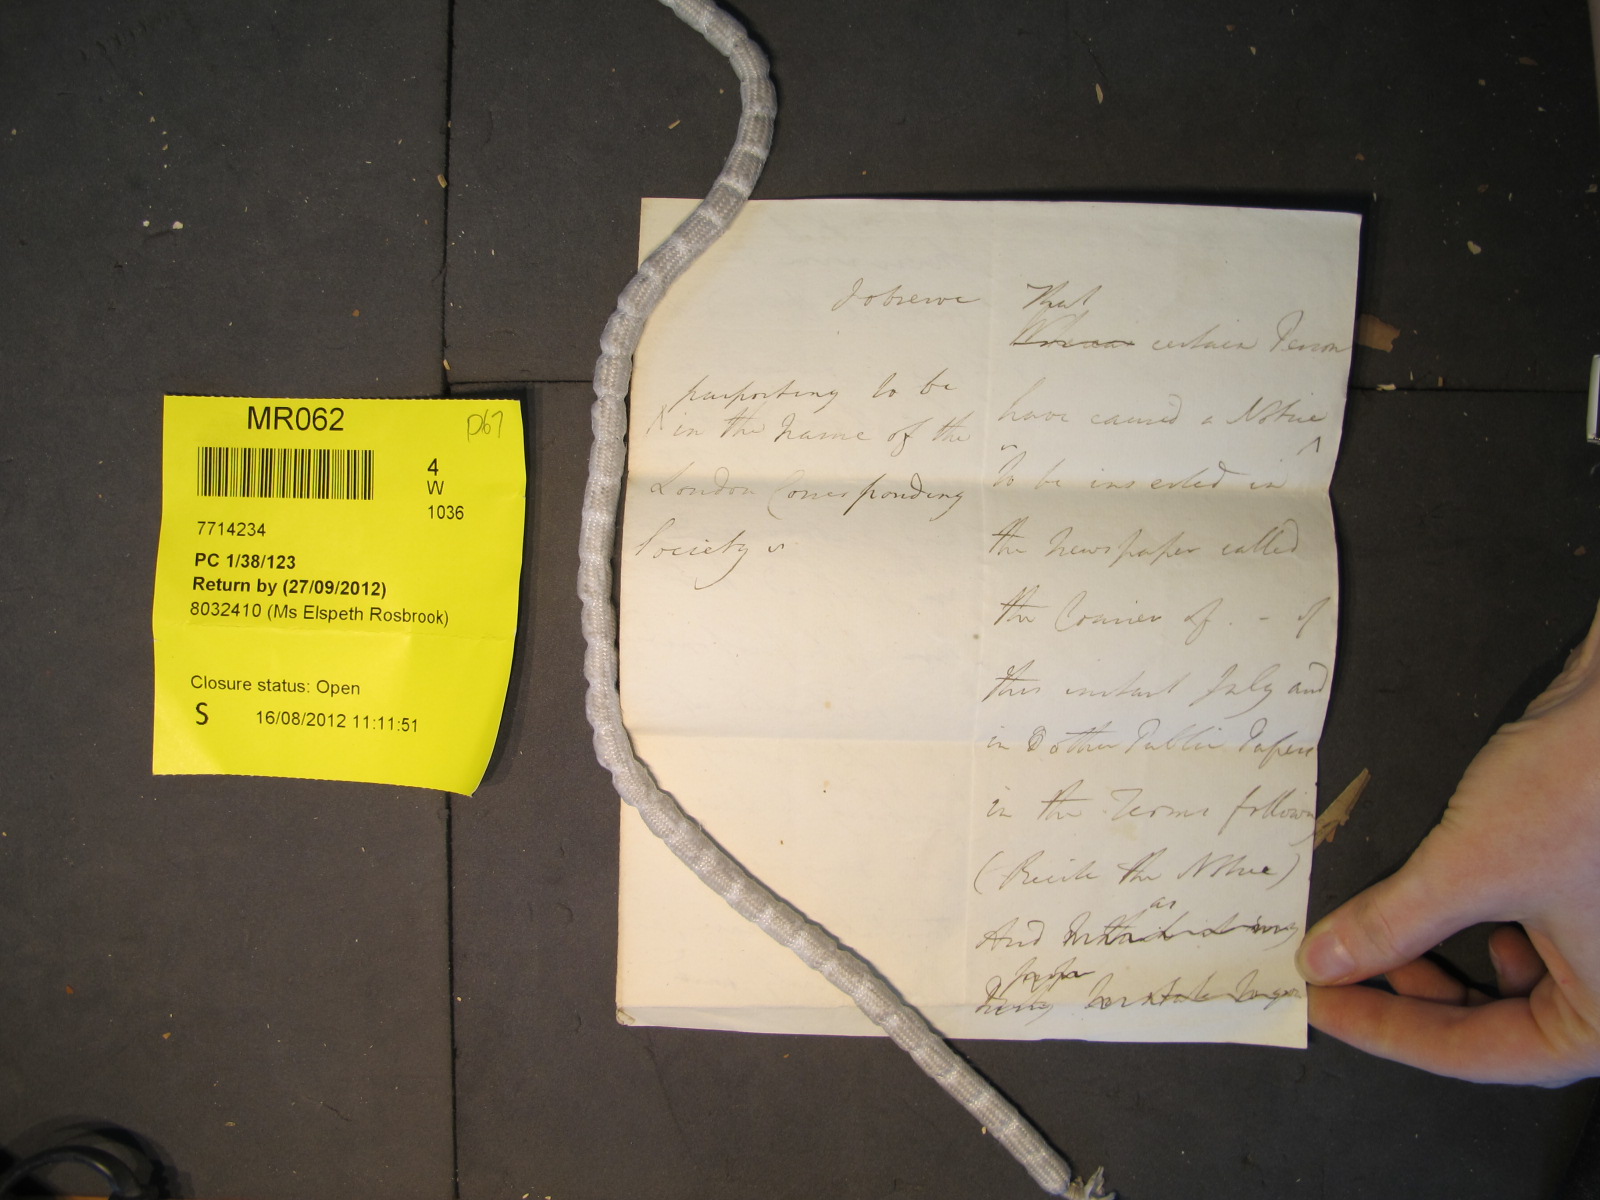 MR062
D67
4
W
1036
7714234
PC 1/38/123
Return by (27/09/2012)
8032410 (Ms Elspeth Rosbrook)
Closure status: Open
S 16/08/2012 11:11:51
I observe That
Whereas certain Person
purporting to be
in the name of the
London Corresponding
Society
have caused a Notice
to be inserted in
the Newspaper called
the Courier of - of
this instant July and
in other Public Papers
in the Terms following
(Recite the Notice)
as
And